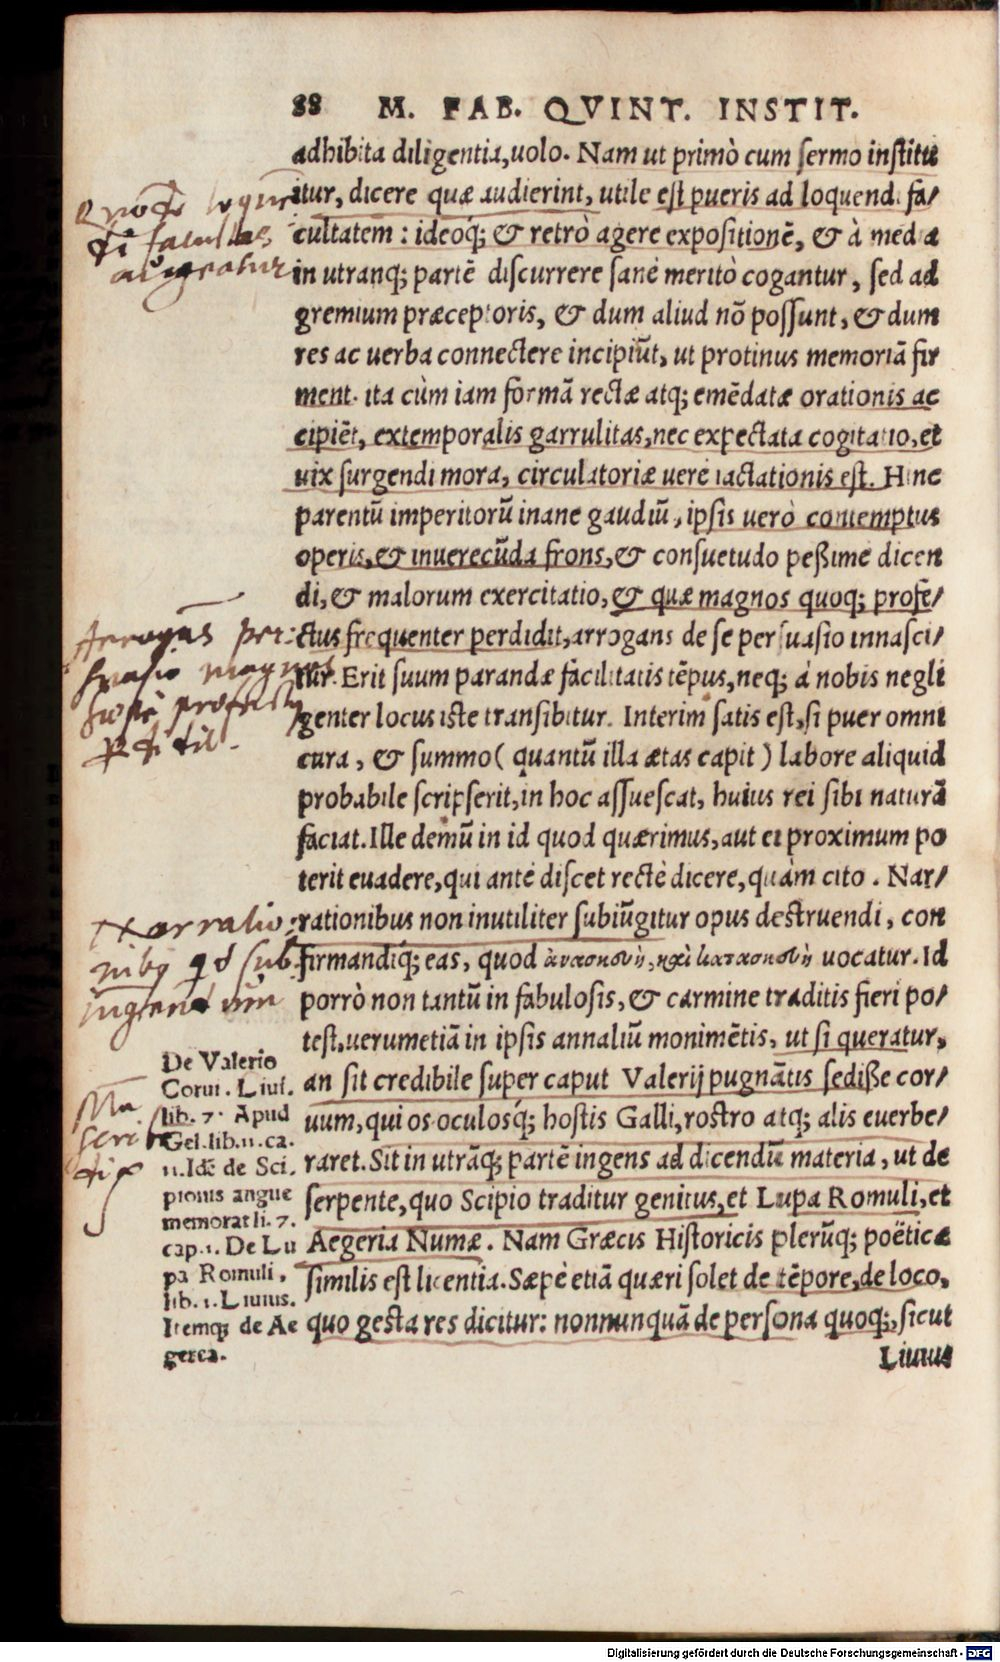 88 M. FAB. QVINT. INSTIT.
adhibita diligentia, uolo. Nam ut primò cum sermo institu
itur, dicere quæ audierint, utile est pueris ad loquendi fa/
cultatem: ideoq́; & retrò agere expositionē, & à media
in utranq; partē discurrere sanè meritò cogantur, sed ad
gremium præceptoris, & dum aliud nō possunt, & dum
res ac uerba connectere incipiūt, ut protinus memoriā fir
ment. ita cùm iam formā rectæ atq; emēdatæ orationis ac
cipiēt, extemporalis garrulitas, nec expectata cogitatio, et
uix surgendi mora, circulatoriæ uerè iactationis est. Hinc
parentū imperitorū inane gaudiū, ipsis uerò contemptus
operis, & inuerecūda frons, & consuetudo peßimè dicen
di, & malorum exercitatio, & quæ magnos quoq; profe/
ctus frequenter perdidit, arrogans de se persuasio innasci/
tur. Erit suum parandæ facilitatis tēpus, neq; à nobis negli
genter locus iste transibitur. Interim satis est, si puer omni
cura, & summo (quantū illa ætas capit) labore aliquid
probabile scripserit, in hoc assuescat, huius rei sibi naturā
faciat. Ille demū in id quod quærimus, aut ei proximum po
terit euadere, qui antè discet rectè dicere, quàm cito. Nar/
rationibus non inutiliter subiūgitur opus destruendi, con
firmandiq́; eas, quod ἀνασκουὴ, καὶ κατασκουὴ uocatur. Id
porrò non tantū in fabulosis, & carmine traditis fieri po/
test, uerumetiā in ipsis annaliū monimētis, ut si queratur,
an sit credibile super caput Valerij pugnātis sediße cor/
uum, qui os oculosq́; hostis Galli, rostro atq; alis euerbe/
raret. Sit in utrāq; partē ingens ad dicendū materia, ut de
serpente, quo Scipio traditur genitus, et Lupa Romuli, et
Aegeria Numæ. Nam Græcis Historicis plerūq; poëticæ
similis est licentia. Sæpè etiā quæri solet de tēpore, de loco,
quo gesta res dicitur: nonnunquā de persona quoq;, sicut
Liuius
facultas
augeatur
Arrogās per-
suasio magnos
sæpè profectus
Narratio
nibus qd sub
De Valerio
Corui. Liui.
lib. 7. Apud
Gel. lib. 11. ca.
11. Idē de Sci.
pionis angue
memorat li. 7.
cap. 1. De Lu
pa Romuli,
lib. 1. Liuius.
Itemq; de Ae
gerea.